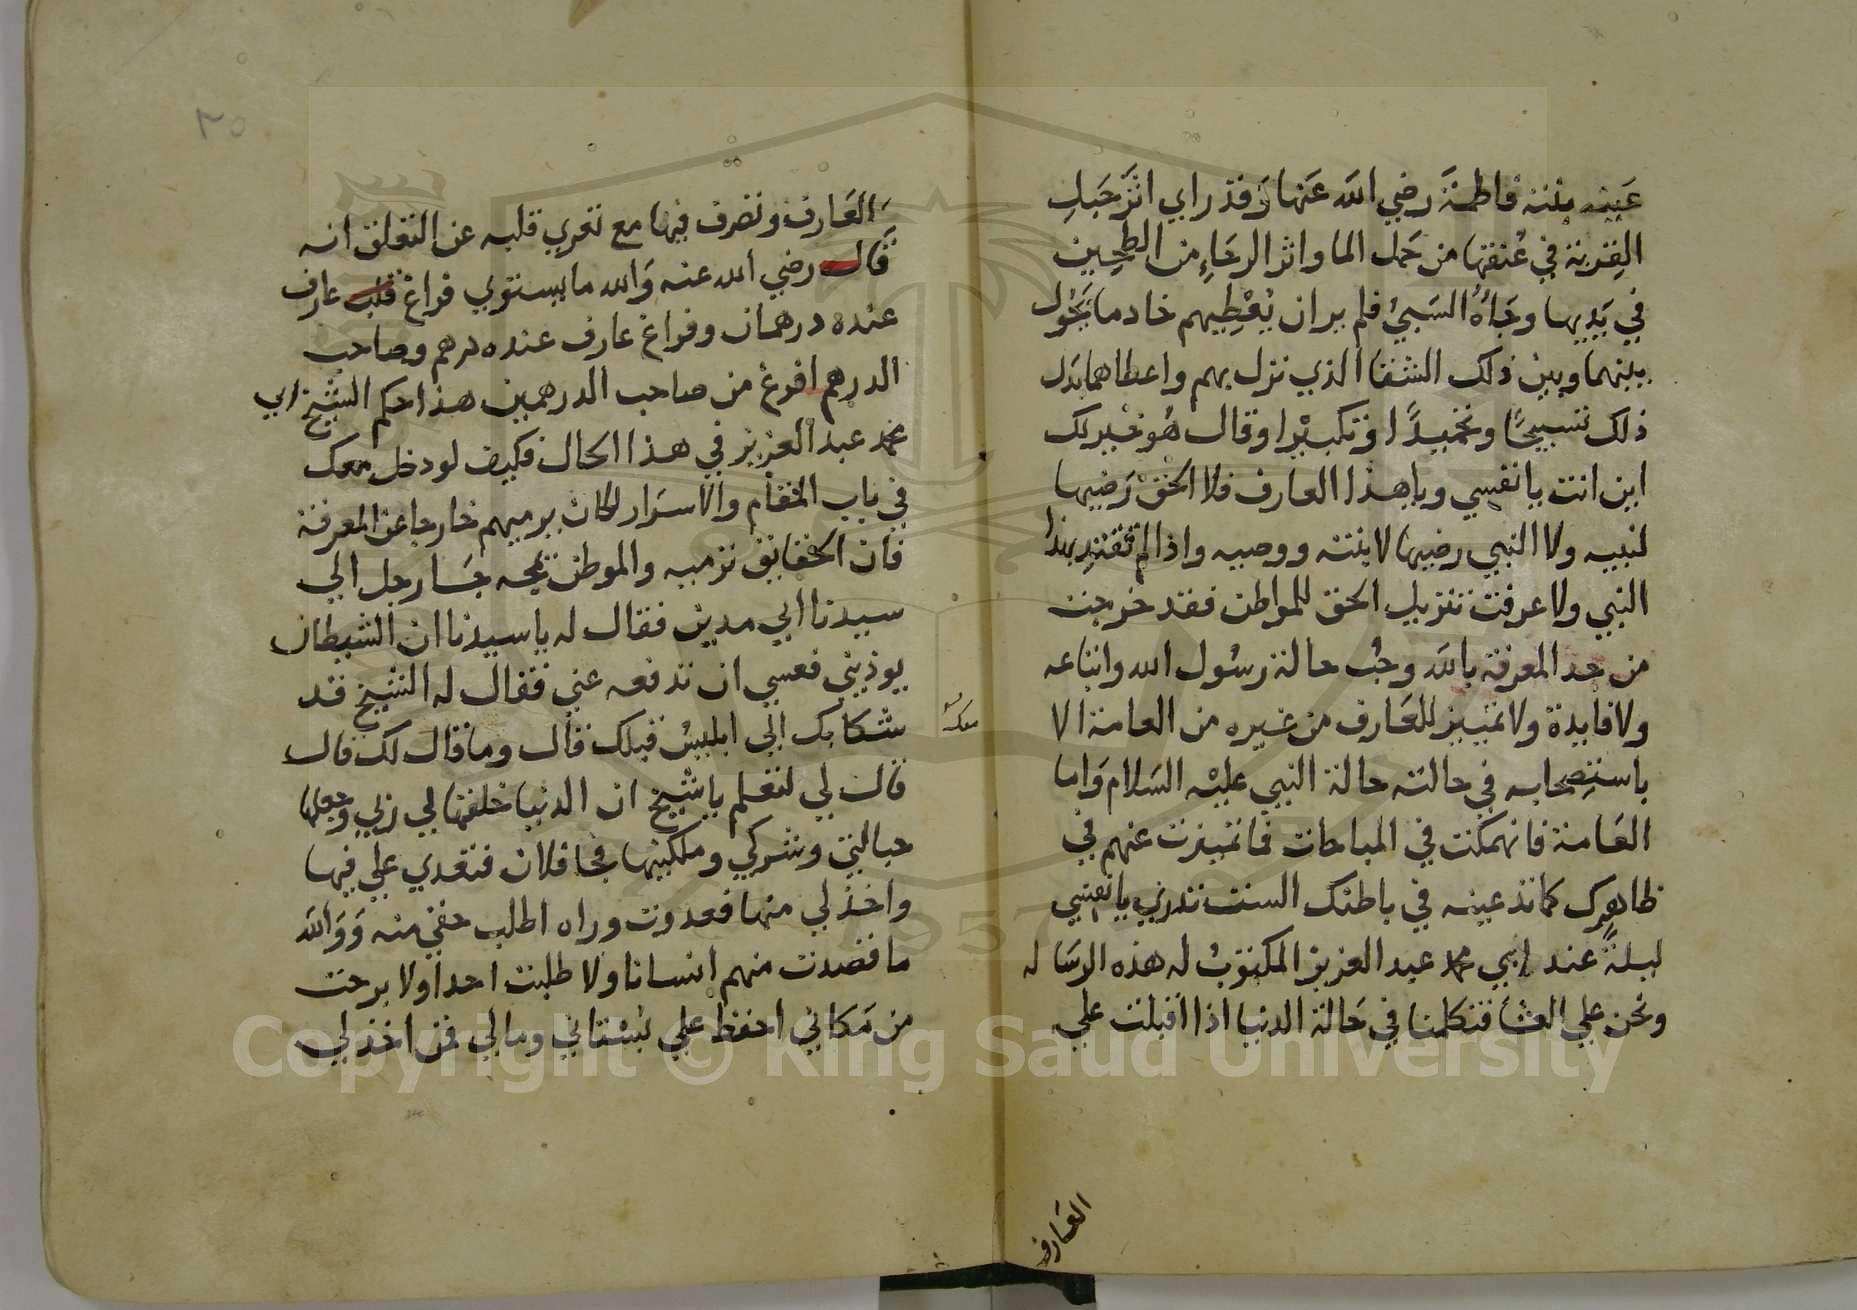 عينه بنته فاطمة رضي الله عنها وقد راي اثر حبل
القربة في عنقها من حمل الما واثر الرحاء من الطحين
في يديها وجاه السبي فلم ير ان يعطيهم خادما يحول
بينهما وبين ذلك الشقا الذي نزل بهم واعطاهما بدل
ذلك تسبيحا وتحميدا وتكبيرا وقال هو خير لك
اين انت يا نفسي ويا هذا العارف فلا الحق رضيها
لنبيه ولا النبي رضيها لابنته ووصيه واذا لم تقتد بهذا
النبي ولا عرفت تنزيل الحق للمواطن فقد خرجت
من حد المعرفة بالله وجب حالة رسول الله واتباعه
ولا فايدة ولا تمييز للعارف من غيره من العامة الا
باستصحابه في حالته حالة النبي عليه السلام واما
العامة فانهمكت في المباحات فما تميزت عنهم في
ظاهرك كما تدعينه في باطنك الست تدري يا نفسي
ليلة عند ابي محمد عبد العزيز المكتوب له هذه الرساله
ونحن علي العشا فتكلمنا في حالة الدنيا اذا اقبلت علي
العارف
العارف وتصرف فيها مع تعري قلبه عن التعلق انه
قال رضي الله عنه والله ما يستوي فراغ قلب عارف
عنده درهمان وفراغ عارف عنده درهم وصاحب
الدرهم افرغ من صاحب الدرهمين هذا حكم الشيخ ابي
محمد عبد العزيز في هذا الحال فكيف لو دخل معك
في باب المقام والاسرار لكان يرميهم خارجا عن المعرفة
فان الحقايق ترميه والموطن يمجه جا رجل الي
سيدنا ابي مدين فقال له يا سيدنا ان الشيطان
يوذيني فعسي ان تدفعه عني فقال له الشيخ قد
شكا بك الي ابليس قبلك قال وما قال لك قال
قال لي لتعلم يا شيخ ان الدنيا خلقها لي ربي وجعلها
حبالتي وشركي وملكنيها فجا فلان فتعدي علي فيها
واخذ لي منها فعدوت وراه اطلب حقي منه ووالله
ما قصدت منهم انسانا ولا طلبت احدا ولا برحت
من مكاني احفظ علي بستاني ومالي فمن اخذ لي
معك
٢٥
Copyright © King Saud University
1957